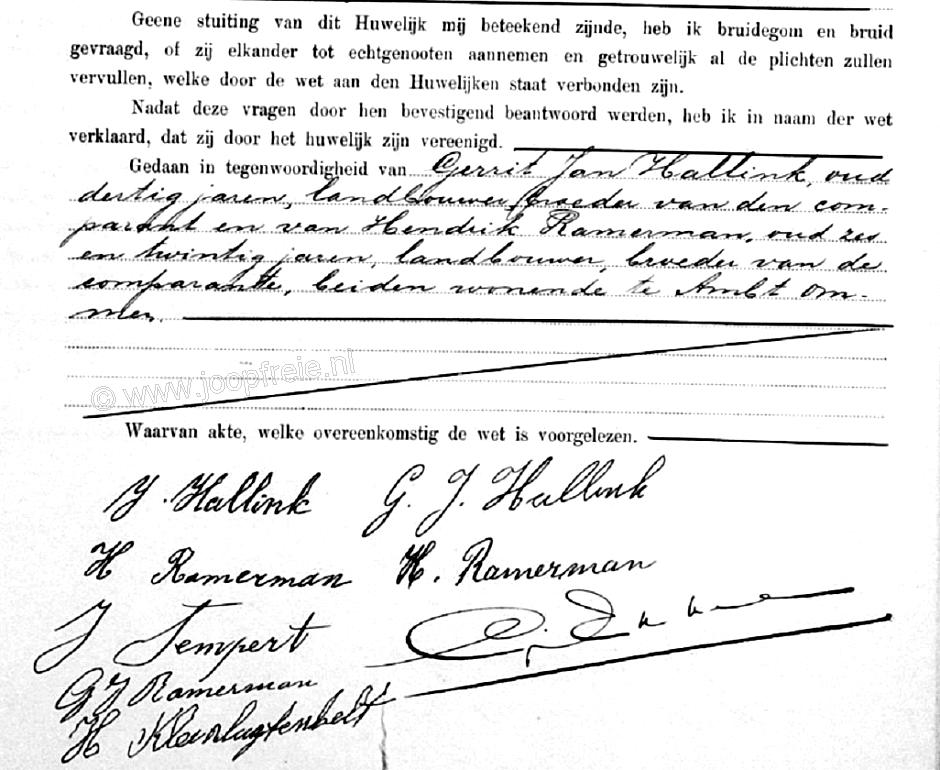 Geene stuiting van dit Huwelijk mij beteekend zijnde, heb ik bruidegom en bruid
gevraagd, of zij elkander tot echtgenooten aannemen en getrouwelijk al de plichten zullen
vervullen, welke door de wet aan den Huwelijken staat verbonden zijn.
Nadat deze vragen door hen bevestigend beantwoord werden, heb ik in naam der wet
verklaard, dat zij door het huwelijk zijn vereenigd.
Gedaan in tegenwoordigheid van Gerrit Jan Hallink, oud
dertig jaren, landbouwer, broeder van den com-
parant en van Hendrik Ramerman, oud zes
en twintig jaren, landbouwer, broeder van de
comparante, beiden wonende te Ambt Om-
men.
© www.joopfreie.nl
Waarvan akte, welke overeenkomstig de wet is voorgelezen.
Hallink G. J. Hallink
H Ramerman H. Ramerman
J Tempert
GJ Ramerman
H Kleinlugtenbelt